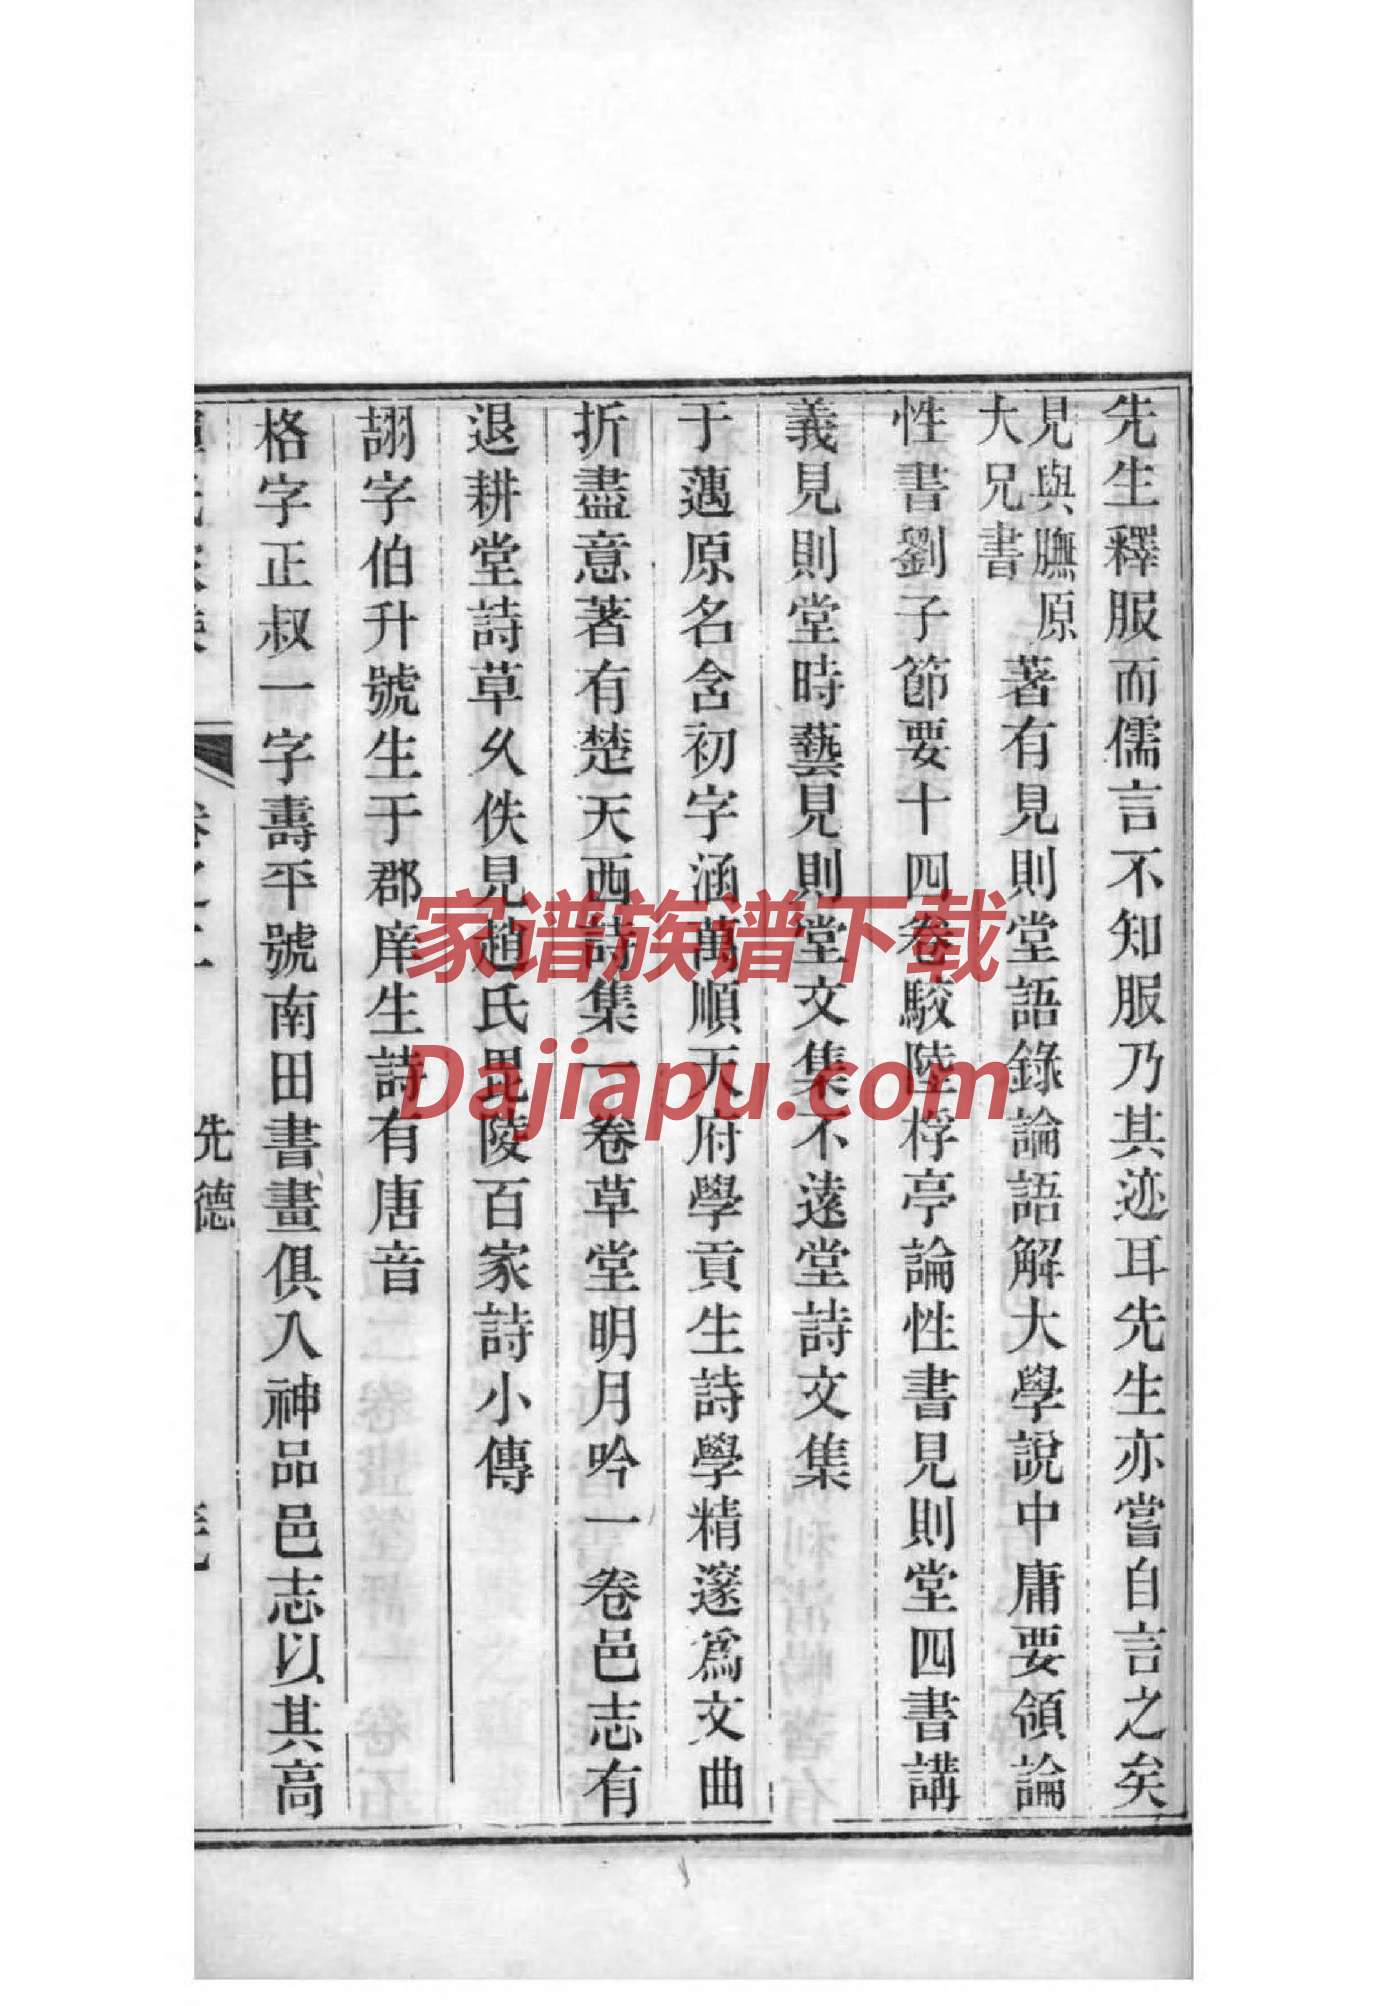 先生釋服而儒言不知服乃其迹耳先生亦嘗自言之矣
見與膴原
大兄書
著有見則堂語錄論語解大學說中庸要領論
性書劉子節要十四卷駁陸桴亭論性書見則堂四書講
義見則堂時藝見則堂文集不遠堂詩文集
于邁原名含初字涵萬順天府學貢生詩學精邃爲文曲
折盡意著有楚天西詩集一卷草堂明月吟一卷邑志有
退耕堂詩草久佚見趙氏毘陵百家詩小傳
詡字伯升號生于郡庠生詩有唐音
格字正叔一字壽平號南田書畫俱入神品邑志以其高
先德
家谱族谱下载
Dajiapu.com